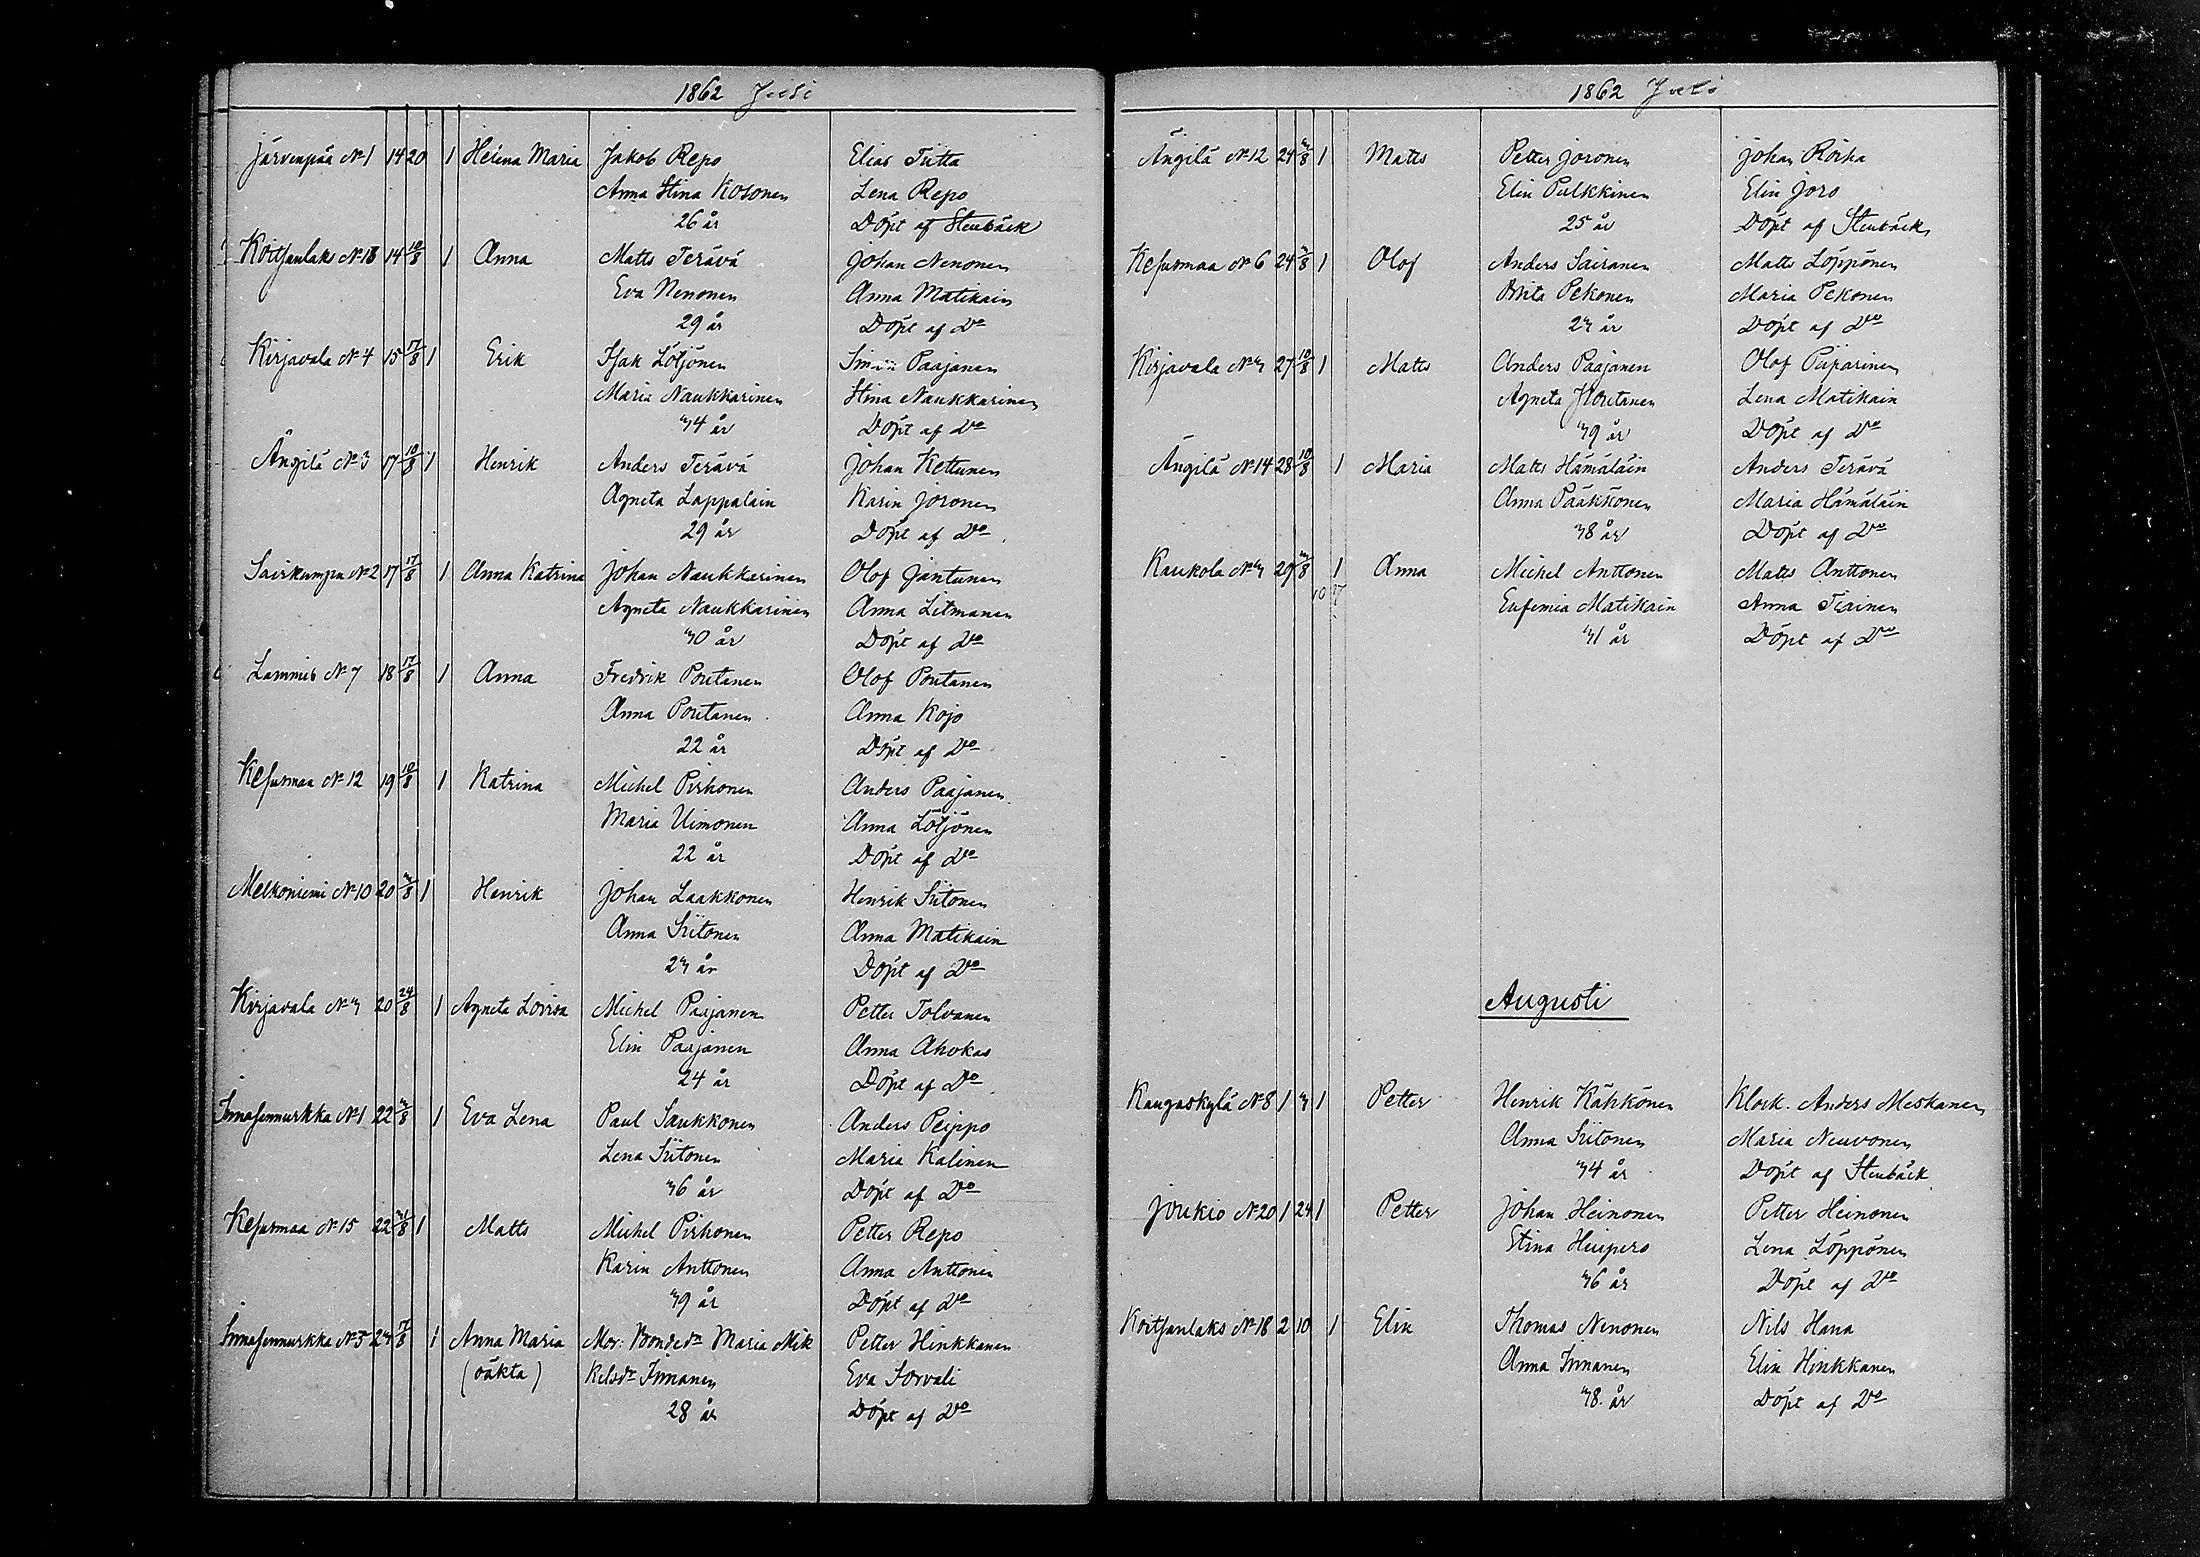 1862 Juli
Järvenpää No 1 14 20 1 Helena Maria Jakob Repo Elias Tutta
Anna Stina Kosonen Lena Repo
26 år Döpt af Stenbäck
Koitsanlaks No 18 14 10/8 1 Anna Matts Terävä Johan Nenonen
Eva Nenonen Anna Matikain
29 år Döpt af Do
Kirjavala No 4 15 17/8 1 Erik Isak Lötjönen Simon Paajanen
Maria Naukkarinen Stina Naukkarinen
34 år Döpt af Do
Ängilä No 3 17 10/8 1 Henrik Anders Terävä Johan Kettunen
Agneta Lappalain Karin Joronen
29 år Döpt af Do
Sairkumpu No 2 17 17/8 1 Anna Katrina Johan Naukkarinen Olof Jantunen
Agneta Naukkarinen Anna Litmanen
30 år Döpt af Do
Lammib No 7 18 17/8 1 Anna Fredrik Poutanen Olof Poutanen
Anna Poutanen Anna Kojo
22 år Döpt af Do
Kesusmaa No 12 19 10/8 1 Katrina Michel Pirhonen Anders Paajanen
Maria Uimonen Anna Lötjönen
22 år Döpt af Do
Melkoniemi No 10 20 3/8 1 Henrik Johan Laakkonen Henrik Siitonen
Anna Siitonen Anna Matikain
23 år Döpt af Do
Kirjavala No 3 20 24/8 1 Agneta Lovisa Michel Paajanen Petter Tolvanen
Elin Paajanen Anna Ahokas
24 år Döpt af Do
Innasennurkka No 1 22 3/8 1 Eva Lena Paul Saukkonen Anders Peippo
Lena Siitonen Maria Kalinen
36 år Döpt af Do
Kesusmaa No 15 22 31/8 1 Matts Michel Pirhonen Petter Repo
Karin Anttonen Anna Anttonen
39 år Döpt af Do
Innasennurkka No 5 23 17/8 1 Anna Maria Mor: Bondedr Maria Mik Petter Hinkkanen
(oäkta) kelsdr Innanen Eva Sorvali
28 år Döpt af Do
1862 Juli
Ängilä No 12 24 3/8 1 Matts Petter Joronen Johan Roiha
Elin Pulkkinen Elin Joro
25 år Döpt af Stenbäck
Kesusmaa No 6 24 3/8 1 Olof Anders Sairanen Matts Löppönen
Brita Pekonen Maria Pekonen
23 år Döpt af Do
Kirjavala No 3 27 10/8 1 Matts Anders Paajanen Olof Piiparinen
Agneta Poutanen Lena Matikain
39 år Döpt af Do
Ängilä No 14 28 10/8 1 Maria Matts Hämäläin Anders Terävä
Anna Pääkkönen Maria Hämäläin
38 år Döpt af Do
Kaukola No 3 29 3/8 1 Anna Michel Anttonen Matts Anttonen
10 17
Eufemia Matikain Anna Tiainen
31 år Döpt af Do
Augusti
Kangaskylä No 8 1 3 1 Petter Henrik Kähkönen Klock. Anders Meskanen
Anna Siitonen Maria Neuvonen
34 år Döpt af Stenbäck
Joukio No 20 1 24 1 Petter Johan Heinonen Petter Heinonen
Stina Huipero Lena Löppönen
36 år Döpt af Do
Koitsanlaks No 18 2 10 1 Elin Thomas Nenonen Nils Hana
Anna Innanen Elin Hinkkanen
38 år Döpt af Do